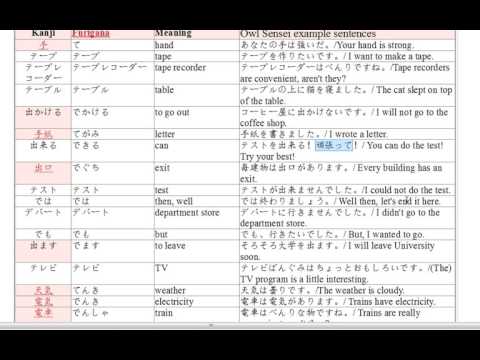 Kanji Furigana Meaning Owl Sensei example sentences
手 て hand あなたの手は強いだ。/Your hand is strong.
テープ テープ tape テープを作りたいです。/I want to make a tape.
テープレ テープレコーダー tape recorder テープレコーダーはべんりですね。/Tape recorders
コーダー are convenient, aren't they?
テーブル テーブル table テーブルの上に猫を寝ました。/ The cat slept on
top of the table.
出かける でかける to go out コーヒー屋に出かけないです。/ I will not go to the
coffee shop.
手紙 てがみ letter 手紙を書きました。/ I wrote a letter.
出来る できる can テストを出来る! 頑張って! / You can do the test!
Try your best!
出口 でぐち exit 毎建物は出口があります。/ Every building has an
exit.
テスト テスト test テストが出来ませんでした。/ I could not do the test.
では では then, well では終わりましょう。/ Well then, let's end it here.
デパート デパート department store デパートに行きませんでした。/ I didn't go to the
department store.
でも でも but でも、行きたいでした。/ But, I wanted to go.
出ます でます to leave そろそろ大学を出ます。/ I will leave University
soon.
テレビ テレビ TV テレビばんぐみはちょっとおもしろいです。/(The)
TV program is a little interesting.
天気 てんき weather 天気は曇りです。/ The weather is cloudy.
電気 でんき electricity 電車は電気があります。/ Trains have electricity.
電車 でんしゃ train 電車はべんりな物ですね。/ Trains are really